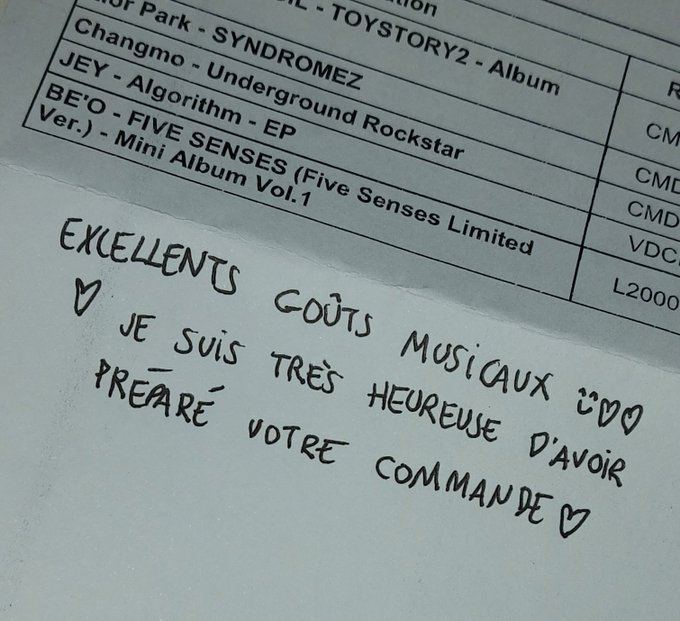 TOYSTORY2 - Album
Park - SYNDROMEZ
Changmo - Underground Rockstar
JEY - Algorithm - EP
BE'O - FIVE SENSES (Five Senses Limited
Ver.) - Mini Album Vol.1
R
CM
CMD
CMD
VDC
L2000
EXCELLENTS GOÛTS MUSICAUX
♡ JE SUIS TRÈS HEUREUSE D'AVOIR
PRÉPARÉ VOTRE COMMANDE♡